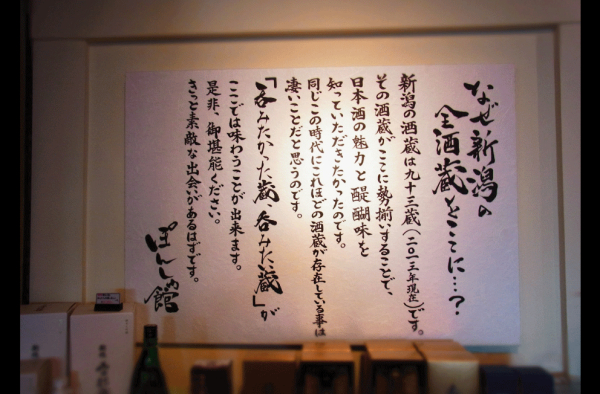 なぜ新潟の
全酒蔵をここに…?
新潟の酒蔵は九十三蔵(二〇一三年現在)です。
その酒蔵がここに勢揃いすることで、
日本酒の魅力と醍醐味を
知っていただきたかったのです。
同じこの時代にこれほどの酒蔵が存在している事は
凄いことだと思うのです。
「呑みたかった蔵、呑みた蔵」が
ここでは味わうことが出来ます。
是非、御堪能ください。
きっと素敵な出会いがあるはずです。
ぽんしゅ館